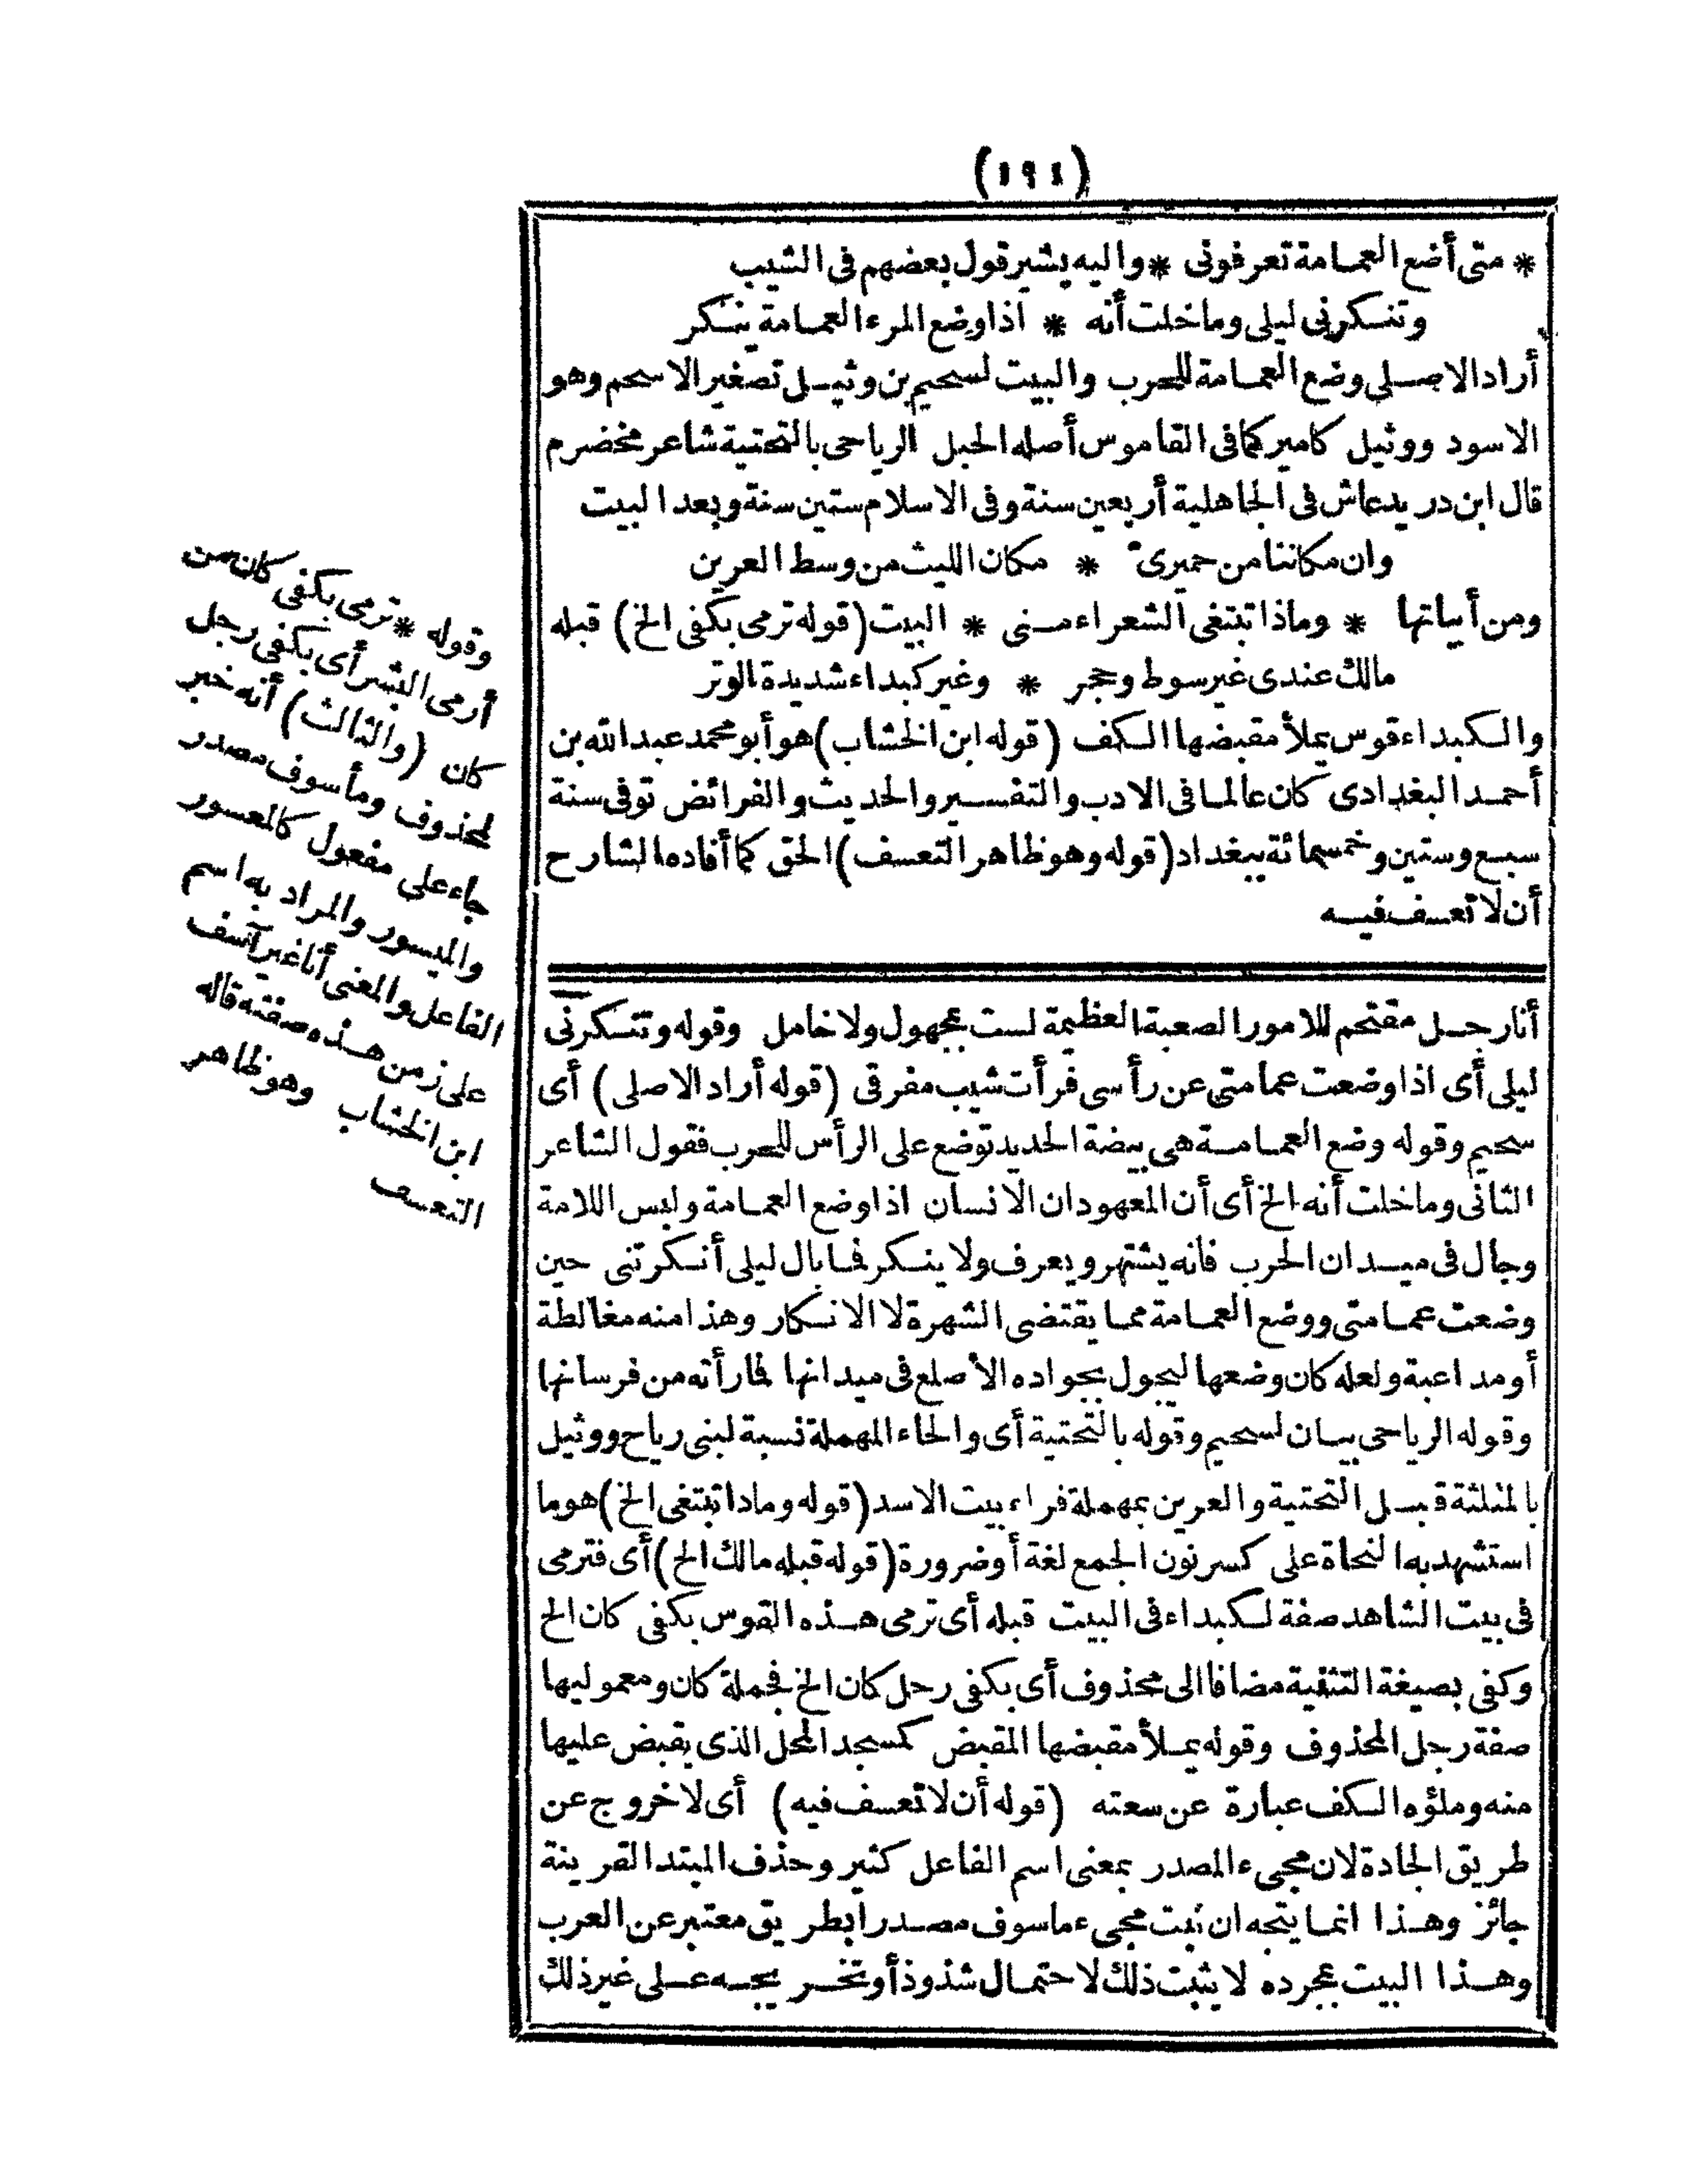 (١٩١)
* متى أضع العمامة تعرفونى * واليه يشير قول بعضهم فى الشيب
وتنكرنى ليلى وما خلت أنه * اذا وضع المرء العمامة ينكر
أراد الاصلى وضع العمامة للحرب والبيت لسحيم بن وثيل تصغير الاسحم وهو
الاسود ووثيل كامير كما فى القاموس أصله الحبل الرياحى بالتحتية شاعر مخضرم
قال ابن دريد عاش فى الجاهلية أربعين سنة وفى الاسلام ستين سنة وبعد البيت
وان مكاننا من حميرى * مكان الليث من وسط العرين
ومن أبياتها * وماذا تبتغى الشعراء منى * البيت (قوله ترمى بكفى الخ) قبله
مالك عندى غير سوط وحجر * وغير كبداء شديدة الوتر
والكبداء قوس يملأ مقبضها الكف (قوله ابن الخشاب) هو أبو محمد عبد الله بن
أحمد البغدادى كان عالما فى الادب والتفسير والحديث والفرائض توفى سنة
سبع وستين وخمسمائة ببغداد (قوله وهو ظاهر التعسف) الحق كما أفاده الشارح
أن لا تعسف فيه
أنا رجل مقتحم للامور الصعبة العظيمة لست بمجهول ولا خامل وقوله وتنكرنى
ليلى أى اذا وضعت عمامتى عن رأسى فرأت شيب مفرقى (قوله أراد الاصلى) أى
سحيم وقوله وضع العمامة هى بيضة الحديد توضع على الرأس للحرب فقول الشاعر
الثانى وما خلت أنه الخ أى أن المعهود ان الانسان اذا وضع العمامة ولبس اللامة
وجال فى ميدان الحرب فانه يشتهر ويعرف ولا ينكر فما بال ليلى أنكرتنى حين
وضعت عمامتى ووضع العمامة مما يقتضى الشهرة لا الانكار وهذا منه مغالطة
أو مداعبة ولعله كان وضعها ليجول بجواده الأصلع فى ميدانها فما رأته من فرسانها
وقوله الرياحى بيان لسحيم وقوله بالتحتية أى والحاء المهملة نسبة لبنى رياح ووثيل
بالمثلثة قبل التحتية والعرين بمهملة فراء بيت الاسد (قوله وماذا تبتغى الخ) هو ما
استشهد به النحاة على كسر نون الجمع لغة أو ضرورة (قوله قبله مالك الخ) أى فترمى
فى بيت الشاهد صفة لكبداء فى البيت قبله أى ترمى هذه القوس بكفى كان الخ
وكفى بصيغة التثنية مضافا الى محذوف أى بكفى رجل كان الخ فجملة كان ومعموليها
صفة رجل المحذوف وقوله يملأ مقبضها المقبض كمسجد المحل الذى يقبض عليها
منه وملؤه الكف عبارة عن سعته (قوله أن لا تعسف فيه) أى لا خروج عن
طريق الجادة لان مجىء المصدر بمعنى اسم الفاعل كثير وحذف المبتدا لقرينة
جائز وهذا انما يتجه ان ثبت مجىء ماسوف مصدرا بطريق معتبر عن العرب
وهذا البيت بمجرده لا يثبت ذلك لاحتمال شذوذ أو تخريجه على غير ذلك
وقوله * ترمى بكفى كان من
أرمى البشر أى بكفى رجل
كان (والثالث) أنه خبر
لمحذوف ومأسوف مصدر
جاء على مفعول كالمعسور
والميسور والمراد به اسم
الفاعل والمعنى أنا غير آسف
على زمن هذه صفته قاله
ابن الخشاب وهو ظاهر
التعسف